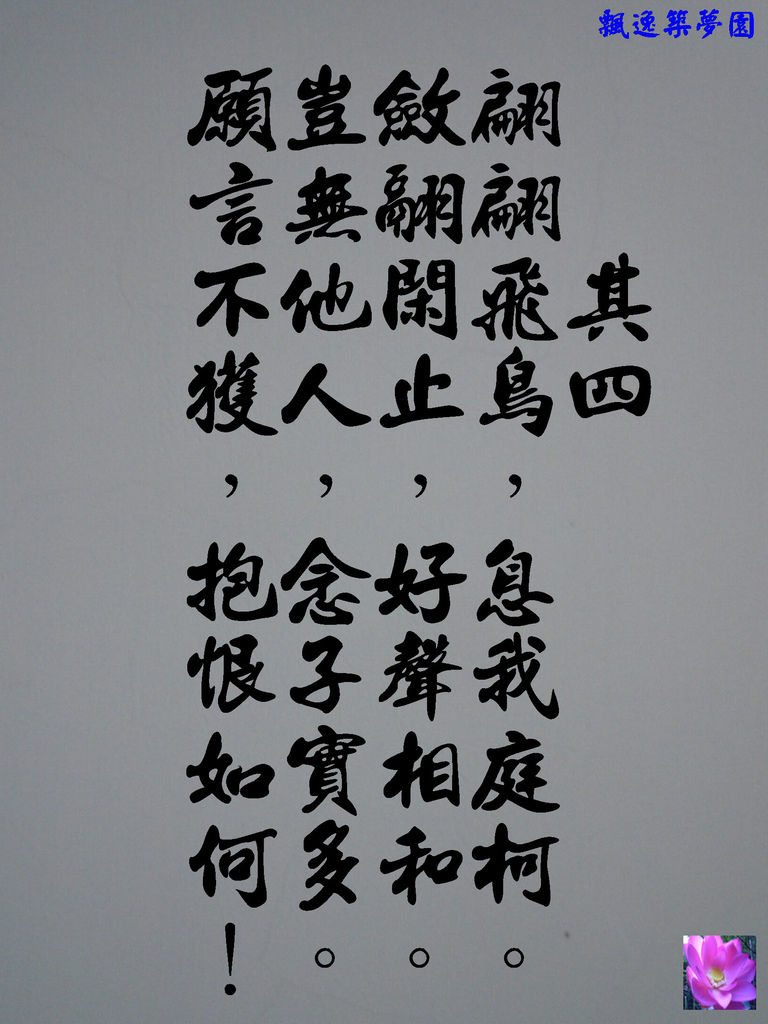 飄逸築夢園
其四
翩翩飛鳥，息我庭柯。
斂翮閑止，好聲相和。
豈無他人，念子實多。
願言不獲，抱恨如何！